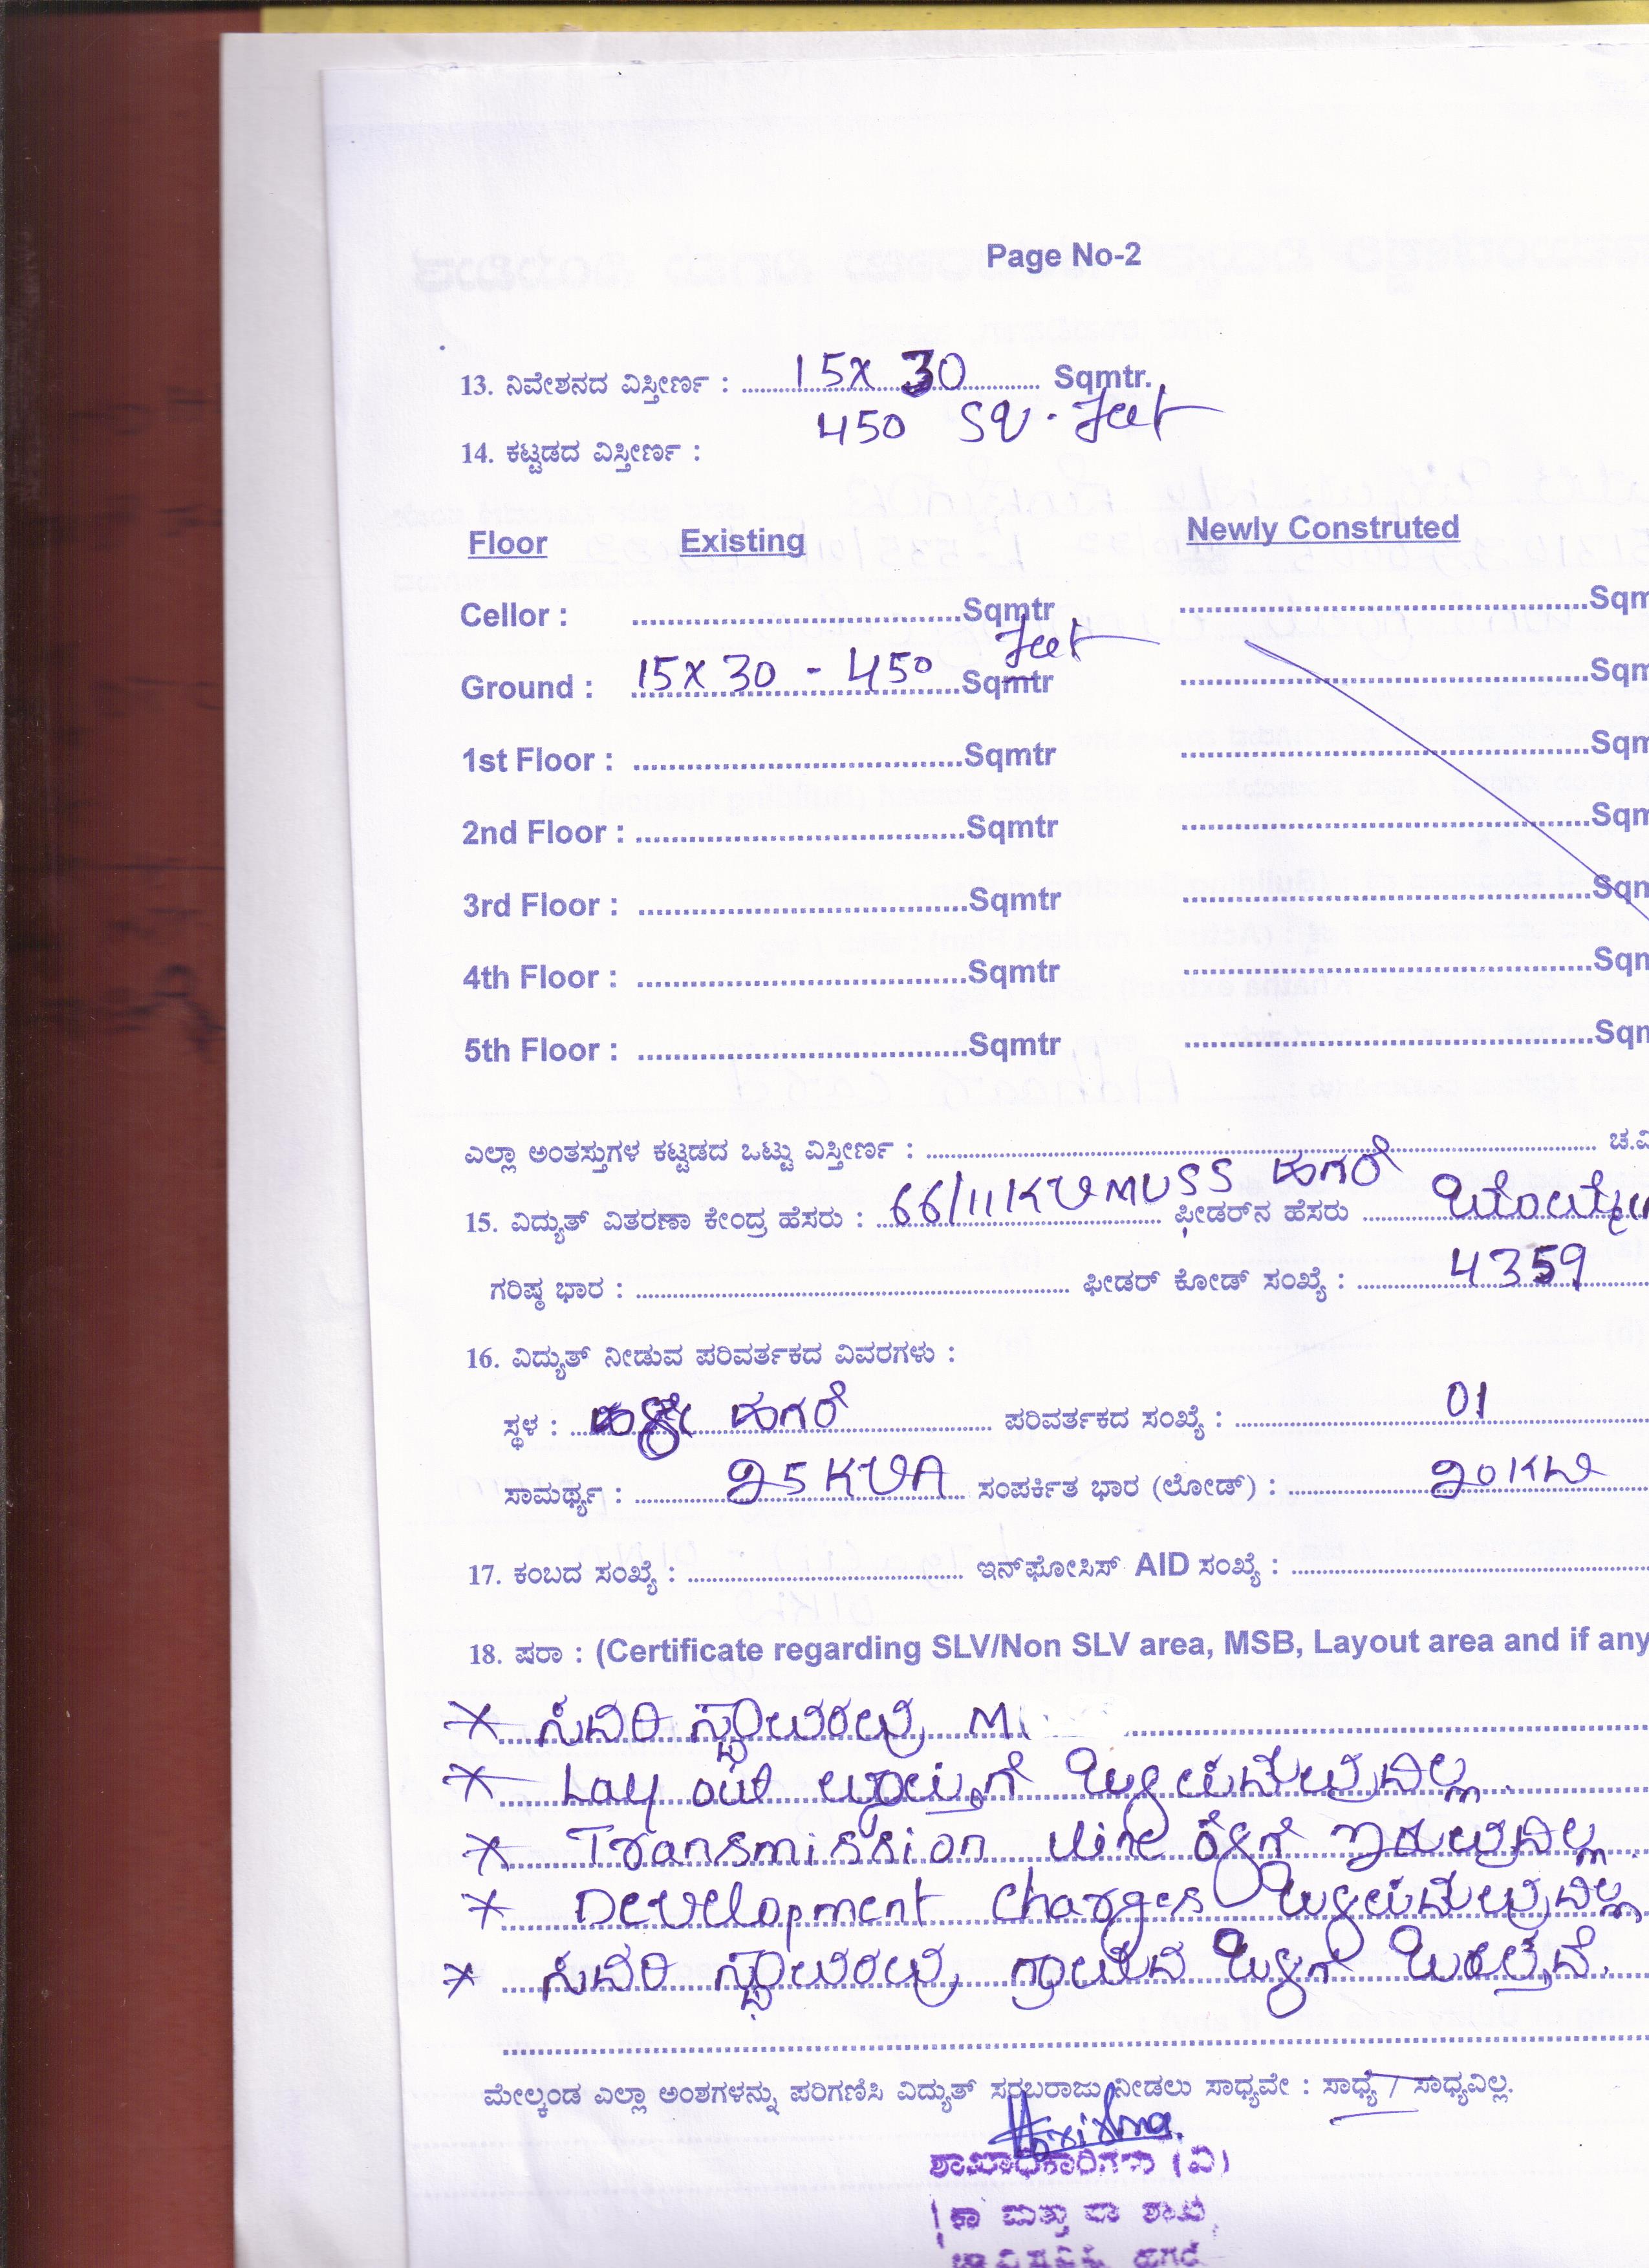 Page No-2
13. ನಿವೇಶನದ ವಿಸ್ತೀರ್ಣ : 15x 30 Sqmtr.
450 SQ. feet
14. ಕಟ್ಟಡದ ವಿಸ್ತೀರ್ಣ :
Floor Existing Newly Construted
Cellor : Sqmtr Sqm
feet
Ground : 15x30 - 450 Sqmtr Sqm
1st Floor : Sqmtr Sqm
2nd Floor : Sqmtr Sqm
3rd Floor : Sqmtr Sqm
4th Floor : Sqmtr Sqm
5th Floor : Sqmtr Sqm
ಎಲ್ಲಾ ಅಂತಸ್ತುಗಳ ಕಟ್ಟಡದ ಒಟ್ಟು ವಿಸ್ತೀರ್ಣ : ಚ.ಮಿ
15. ವಿದ್ಯುತ್ ವಿತರಣಾ ಕೇಂದ್ರ ಹೆಸರು : 66/11KV MUSS ಹಗರೆ ಫೀಡರ್‌ನ ಹೆಸರು
ಗರಿಷ್ಠ ಭಾರ : ಫೀಡರ್ ಕೋಡ್ ಸಂಖ್ಯೆ : 4359
16. ವಿದ್ಯುತ್ ನೀಡುವ ಪರಿವರ್ತಕದ ವಿವರಗಳು :
ಸ್ಥಳ : ಹಳೇ ಹಗರೆ ಪರಿವರ್ತಕದ ಸಂಖ್ಯೆ : 01
ಸಾಮರ್ಥ್ಯ : 25 KVA ಸಂಪರ್ಕಿತ ಭಾರ (ಲೋಡ್) : 20 KW
17. ಕಂಬದ ಸಂಖ್ಯೆ : ಇನ್‌ಫೋಸಿಸ್ AID ಸಂಖ್ಯೆ :
18. ಷರಾ : (Certificate regarding SLV/Non SLV area, MSB, Layout area and if any
* ಸದರಿ ಸ್ಥಾವರವು M
* Lay out ವ್ಯಾಪ್ತಿಗೆ ಒಳಪಡುವುದಿಲ್ಲ.
* Transmission line ಕೆಳಗೆ ಇರುವುದಿಲ್ಲ.
* Development charges ಒಳಪಡುವುದಿಲ್ಲ
* ಸದರಿ ಸ್ಥಾವರವು ಗ್ರಾಮದ ಒಳಗೆ ಬರುತ್ತದೆ.
ಮೇಲ್ಕಂಡ ಎಲ್ಲಾ ಅಂಶಗಳನ್ನು ಪರಿಗಣಿಸಿ ವಿದ್ಯುತ್ ಸರಬರಾಜು ನೀಡಲು ಸಾಧ್ಯವೇ : ಸಾಧ್ಯ / ಸಾಧ್ಯವಿಲ್ಲ.
ಶಾಖಾಧಿಕಾರಿಗಳು (ವಿ)
ಕಾ ಮತ್ತು ಪಾ ಶಾಖೆ,
ಹಗರೆ